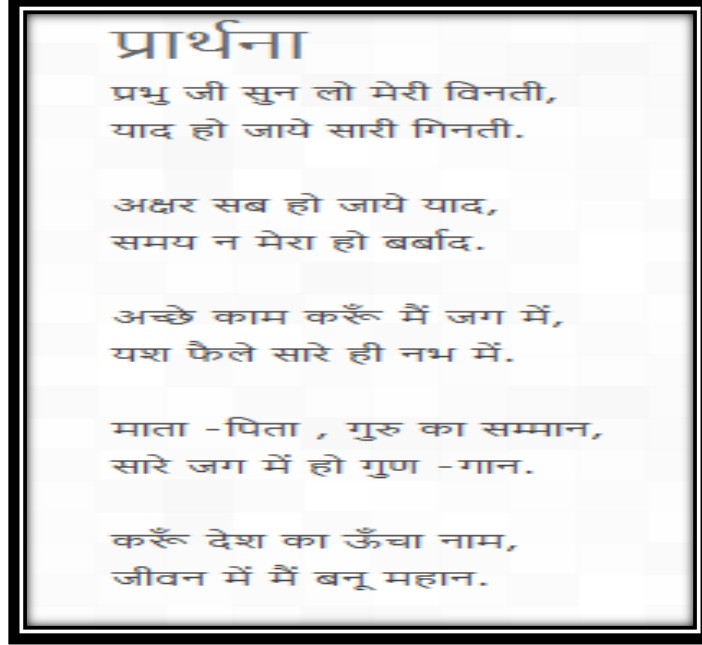 प्रार्थना
प्रभु जी सुन लो मेरी विनती,
याद हो जाये सारी गिनती.
अक्षर सब हो जाये याद,
समय न मेरा हो बर्बाद.
अच्छे काम करूँ मैं जग में,
यश फैले सारे ही नभ में.
माता -पिता , गुरु का सम्मान,
सारे जग में हो गुण -गान.
करूँ देश का ऊँचा नाम,
जीवन में मैं बनू महान.